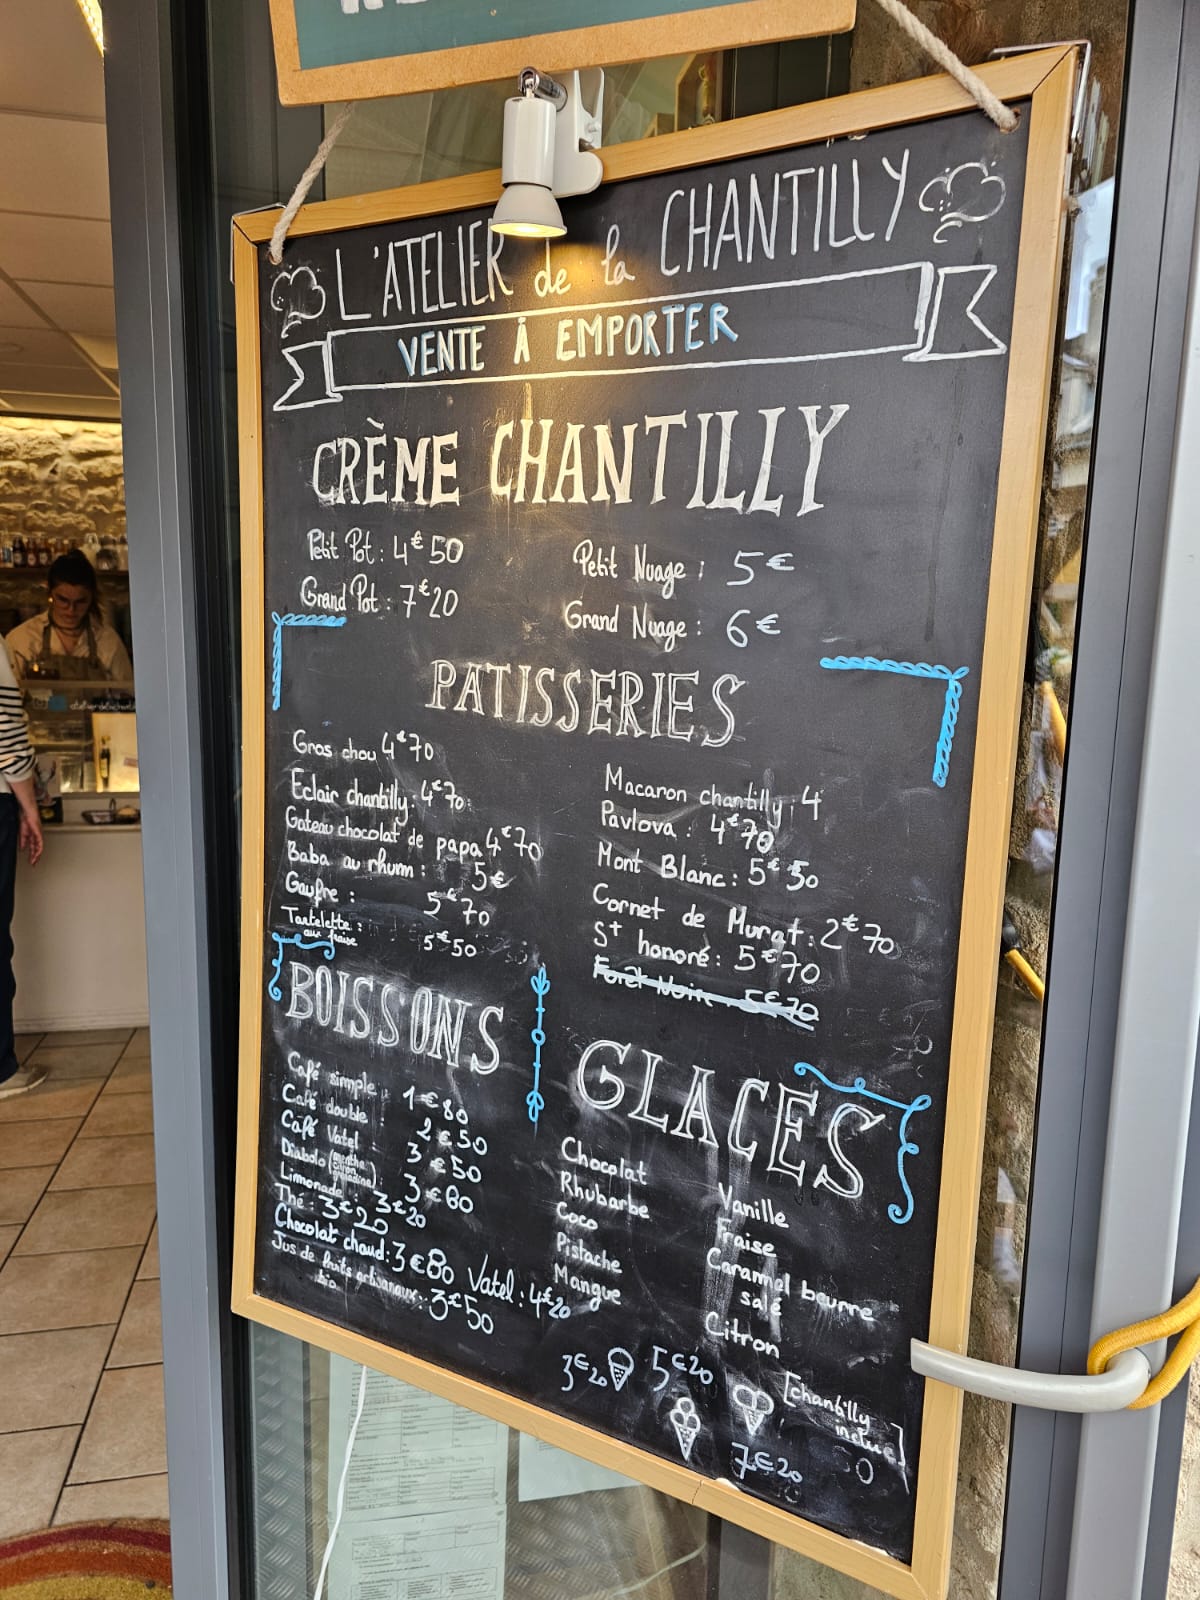 L'ATELIER de la CHANTILLY
VENTE À EMPORTER
CRÈME CHANTILLY
Petit Pot : 4€50
Grand Pot : 7€20
Petit Nuage : 5€
Grand Nuage : 6€
PATISSERIES
Gros chou 4€70
Eclair chantilly : 4€70
Gateau chocolat de papa 4€70
Baba au rhum : 5€
Gaufre : 5€70
Tartelette :
aux fraise 5€50
Macaron chantilly : 4
Pavlova : 4€70
Mont Blanc : 5€50
Cornet de Murat : 2€70
St honoré : 5€70
Forêt Noire : 5€70
BOISSONS
Café simple 1€80
Café double : 2€50
Café Vatel : 3€50
Diabolo (menthe citron grenadine) : 3€80
Limonade : 3€20
Thé : 3€20
Chocolat chaud : 3€80 Vatel : 4€20
Jus de fruits artisanaux : 3€50
bio
GLACES
Chocolat
Rhubarbe
Coco
Pistache
Mangue
Vanille
Fraise
Caramel beurre
salé
Citron
3€20
5€20
7€20
[chantilly
inclue]